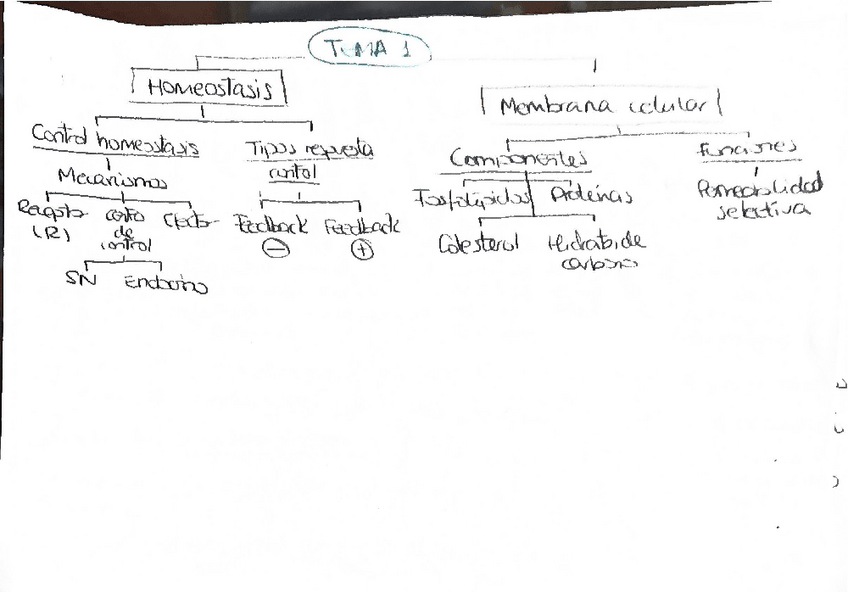 TEMA 1
Homeostasis
Membrana celular
Control homeostasis
Tipos respuesta
control
Componentes
Funciones
Mecanismos
Fosfolípidos
Proteínas
Permeabilidad
selectiva
Receptor
(R)
centro
de
control
Efector
Feedback
-
Feedback
+
Colesterol
Hidrato de
carbono
SN
Endocrino